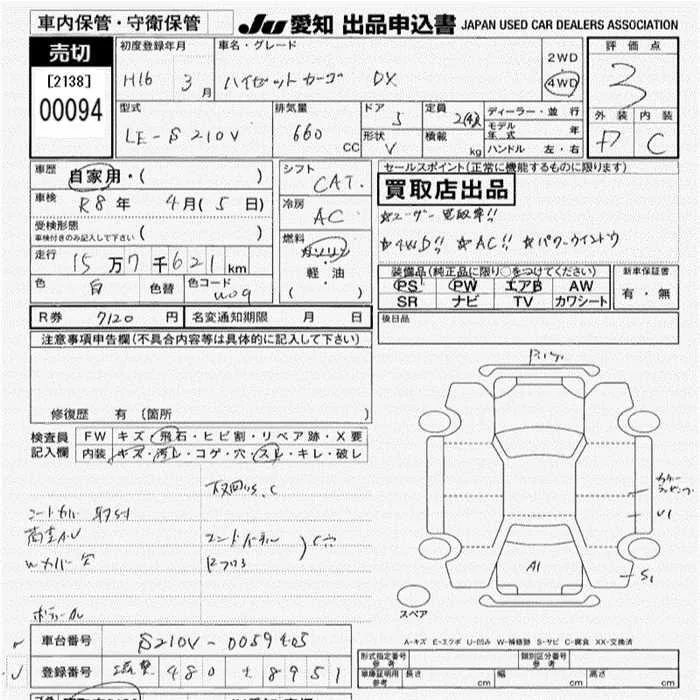 車内保管・守衛保管
JU 愛知 出品申込書 JAPAN USED CAR DEALERS ASSOCIATION
売切
[2138]
00094
初度登録年月
H16 3月
車名・グレード
ハイゼットカーゴ DX
2WD
4WD
評価点
3
外装 内装
C
型式
LE-S210V
排気量
660 CC
ドア
5
形状
V
定員
積載
kg
ディーラー・並行
モデル年式 年
ハンドル 左・右
車歴
自家用・( )
車検
R8年 4月(5日)
受検形態
車検付きのみ記入して下さい ( )
走行
15万7千621km
色
白
色替
色コード
W09
シフト
CAT.
冷房
AC
燃料
ガソリン
軽油
( )
セールスポイント(正常に機能するものに限ります)
買取店出品
☆ユーザー買取車!!
☆4WD!! ☆AC!! ☆パワーウインドウ
装備品(純正品に限り○をつけてください)
PS PW エアB AW
SR ナビ TV カワシート
新車保証書
有・無
R券 7120円
名変通知期限 月 日
後日品
注意事項申告欄(不具合内容等は具体的に記入して下さい)
修復歴 有 〔箇所 〕
検査員記入欄
FW キズ・飛石・ヒビ割・リペア跡・X要
内装 キズ・汚レ・コゲ・穴・スレ・キレ・破レ
A1
U1
S1
スペア
A-キズ E-エクボ U-凹み W-補修跡 S-サビ C-腐食 XX-交換済
車台番号 S210V-0059405
登録番号 480 8951
形式指定番号 参考
類別区分番号 参考
車庫証明用 参考
長さ cm 幅 cm 高さ cm